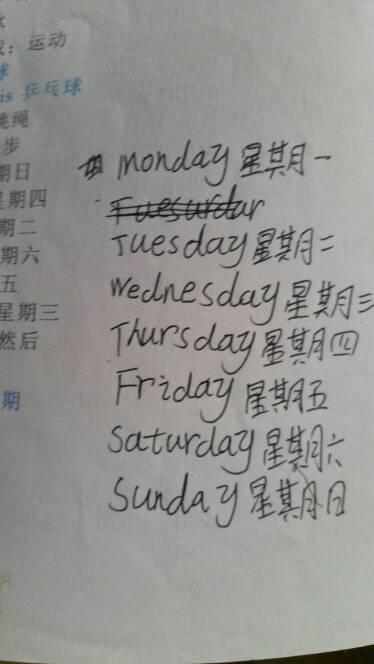 运动
球
is 乒乓球
跳绳
步
期日
星期四
期二
期六
五
星期三
然后
期
monday 星期一
Tuesday 星期二
Wednesday 星期三
Thursday 星期四
Friday 星期五
Saturday 星期六
Sunday 星期日